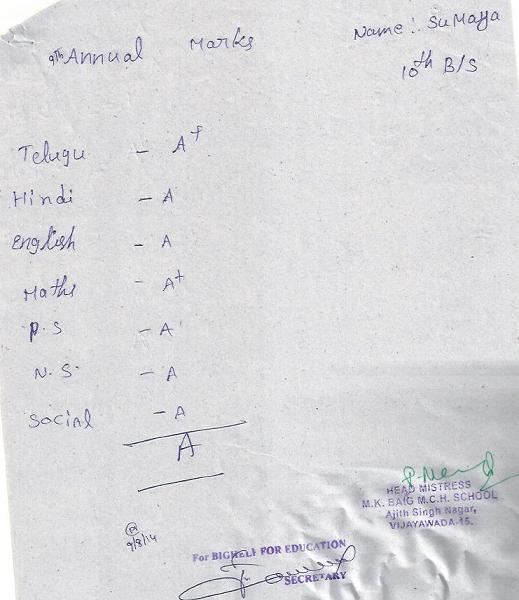 Name: SuMayya
9th Annual Marks
10th B/S
Telugu - A+
Hindi - A
English - A
Maths - A+
P.S - A
N.S. - A
Social - A
A
HEAD MISTRESS
M.K. BAIG M.C.H. SCHOOL
Ajith Singh Nagar,
VIJAYAWADA-15.
9/8/14
For BIGHELP FOR EDUCATION
SECRETARY